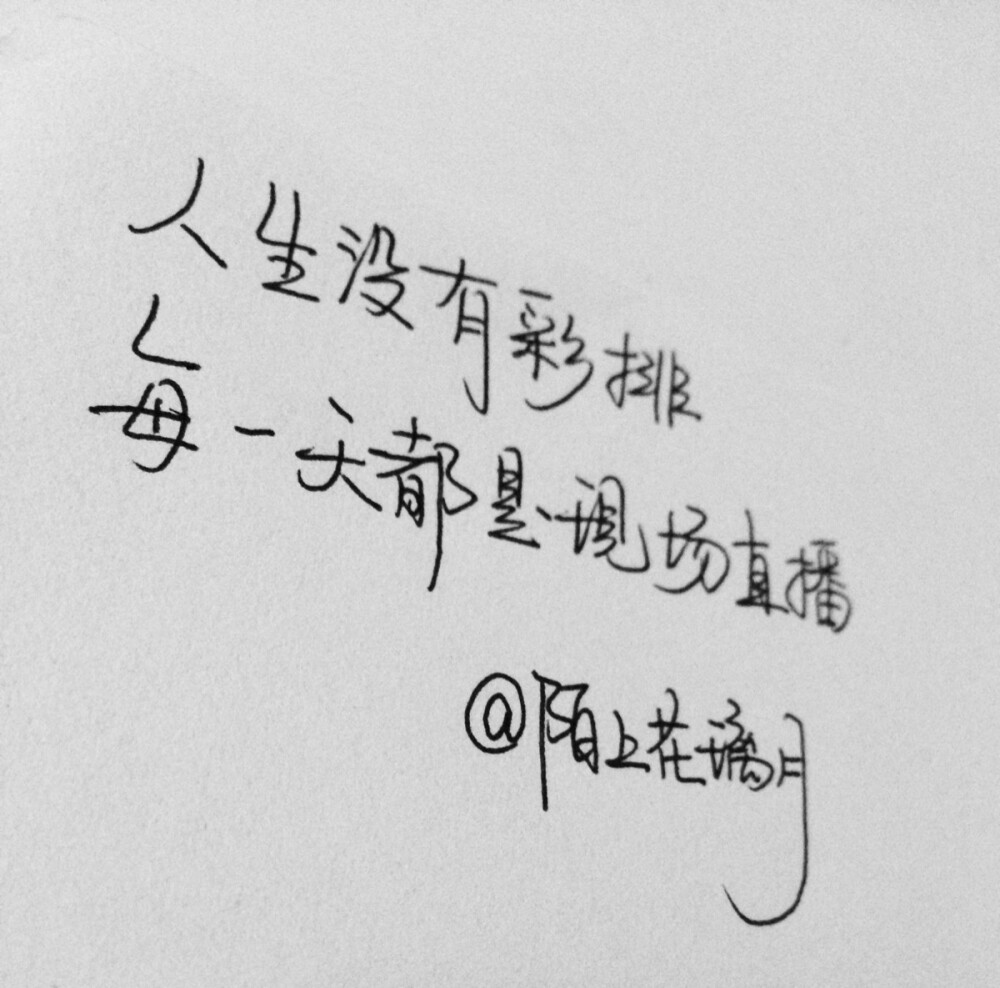 人生没有彩排
每一天都是现场直播
@陌上花璃月